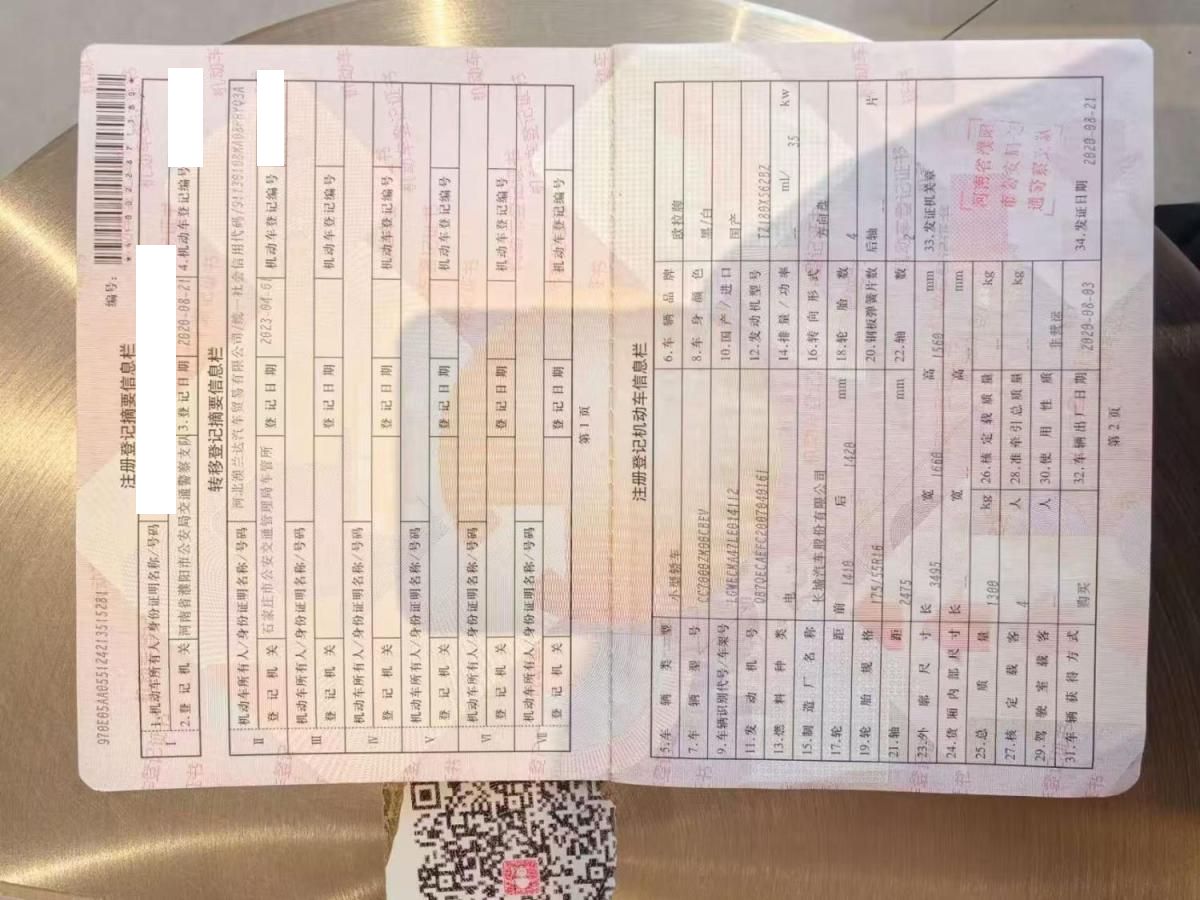 970E05AA0551242135152​81
编号:
注册登记摘要信息栏
I 1.机动车所有人/身份证明名称/号码
2.登记机关 河南省濮阳市公安局交通警察支队 3.登记日期 2020-08-21 4.机动车登记编号
转移登记摘要信息栏
II 机动车所有人/身份证明名称/号码 河北澳兰达汽车贸易有限公司/统一社会信用代码/
登记机关 石家庄市公安交通管理局车管所 登记日期 2023-04-6 机动车登记编号
III 机动车所有人/身份证明名称/号码
登记机关 登记日期 机动车登记编号
IV 机动车所有人/身份证明名称/号码
登记机关 登记日期 机动车登记编号
V 机动车所有人/身份证明名称/号码
登记机关 登记日期 机动车登记编号
VI 机动车所有人/身份证明名称/号码
登记机关 登记日期 机动车登记编号
VII 机动车所有人/身份证明名称/号码
登记机关 登记日期 机动车登记编号
第1页
注册登记机动车信息栏
5.车辆类型 小型轿车 6.车辆品牌 欧拉牌
7.车辆型号 8.车身颜色 黑/白
9.车辆识别代号/车架号 LGWECMA47LE014112 10.国产/进口 国产
11.发动机号 12.发动机型号
13.燃料种类 电 14.排量/功率 — ml/ 35 kw
15.制造厂名称 长城汽车股份有限公司 16.转向形式 方向盘
17.轮距 前 1410 后 1420 mm 18.轮胎数 4
19.轮胎规格 175/55R16 20.钢板弹簧片数 后轴 片
21.轴距 2475 mm 22.轴数 2
23.外廓尺寸 长 3495 宽 1660 高 1560 mm 33.发证机关章
24.货厢内部尺寸 长 宽 高 mm
25.总质量 1300 kg 26.核定载质量 kg
27.核定载客 4 人 28.准牵引总质量 kg
29.驾驶室载客 人 30.使用性质 非营运
31.车辆获得方式 购买 32.车辆出厂日期 2020-08-03 34.发证日期 2020-08-21
河南省濮阳
市公安局交
通警察支队
第2页